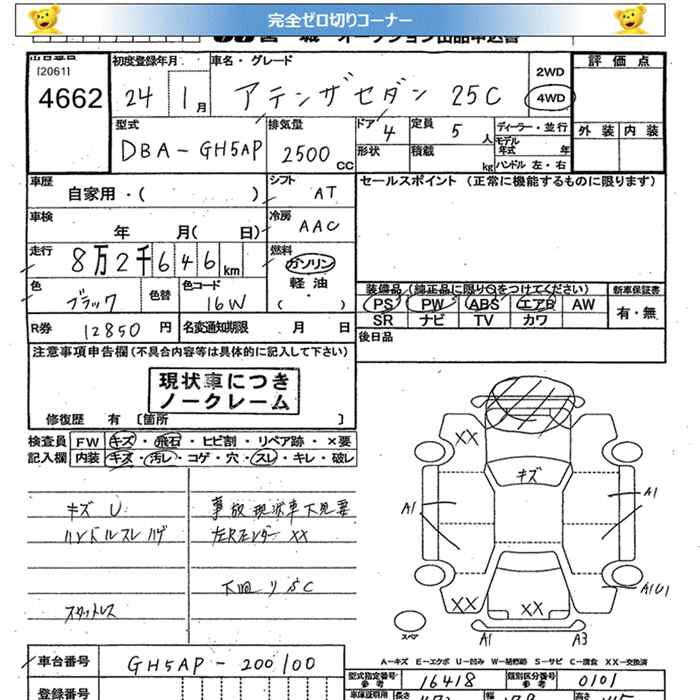 完全ゼロ切りコーナー
オークション出品申込書
[2061]
4662
初度登録年月
24 1月
車名・グレード
アテンザセダン 25C
2WD
4WD
評価点
外装 内装
型式
DBA-GH5AP
排気量
2500 CC
ドア
4
定員
5 人
形状
積載
kg
ディーラー・並行
モデル年式 年
ハンドル 左・右
車歴
自家用・( )
シフト
AT
セールスポイント (正常に機能するものに限ります)
車検
年 月( 日)
冷房
AAC
走行
8万2千646km
燃料
ガソリン
軽油
・( )
色
ブラック
色替
色コード
16W
装備品 (純正品に限り○をつけてください)
PS PW ABS エアB AW
SR ナビ TV カワ
新車保証書
有・無
R券
12850 円
名変通知期限
月 日
後日品
注意事項申告欄(不具合内容等は具体的に記入して下さい)
現状車につき
ノークレーム
修復歴 有 [箇所 ]
検査員
記入欄
FW キズ・飛石・ヒビ割・リペア跡・×要
内装 キズ・汚レ・コゲ・穴・スレ・キレ・破レ
キズ U
ハンドルスレ ハゲ
スタットレス
事故現状車下見要
左Rフェンダー XX
下回り SC
XX
キズ
A1
A1
A1U1
XX
XX
スペア
A1
A3
A-キズ E-エクボ U-凹み W-補修跡 S-サビ C-腐食 XX-交換済
車台番号
GH5AP-200100
登録番号
型式指定番号
参考
16418
類別区分番号
参考
0101
車庫証明用
長さ
幅
高さ